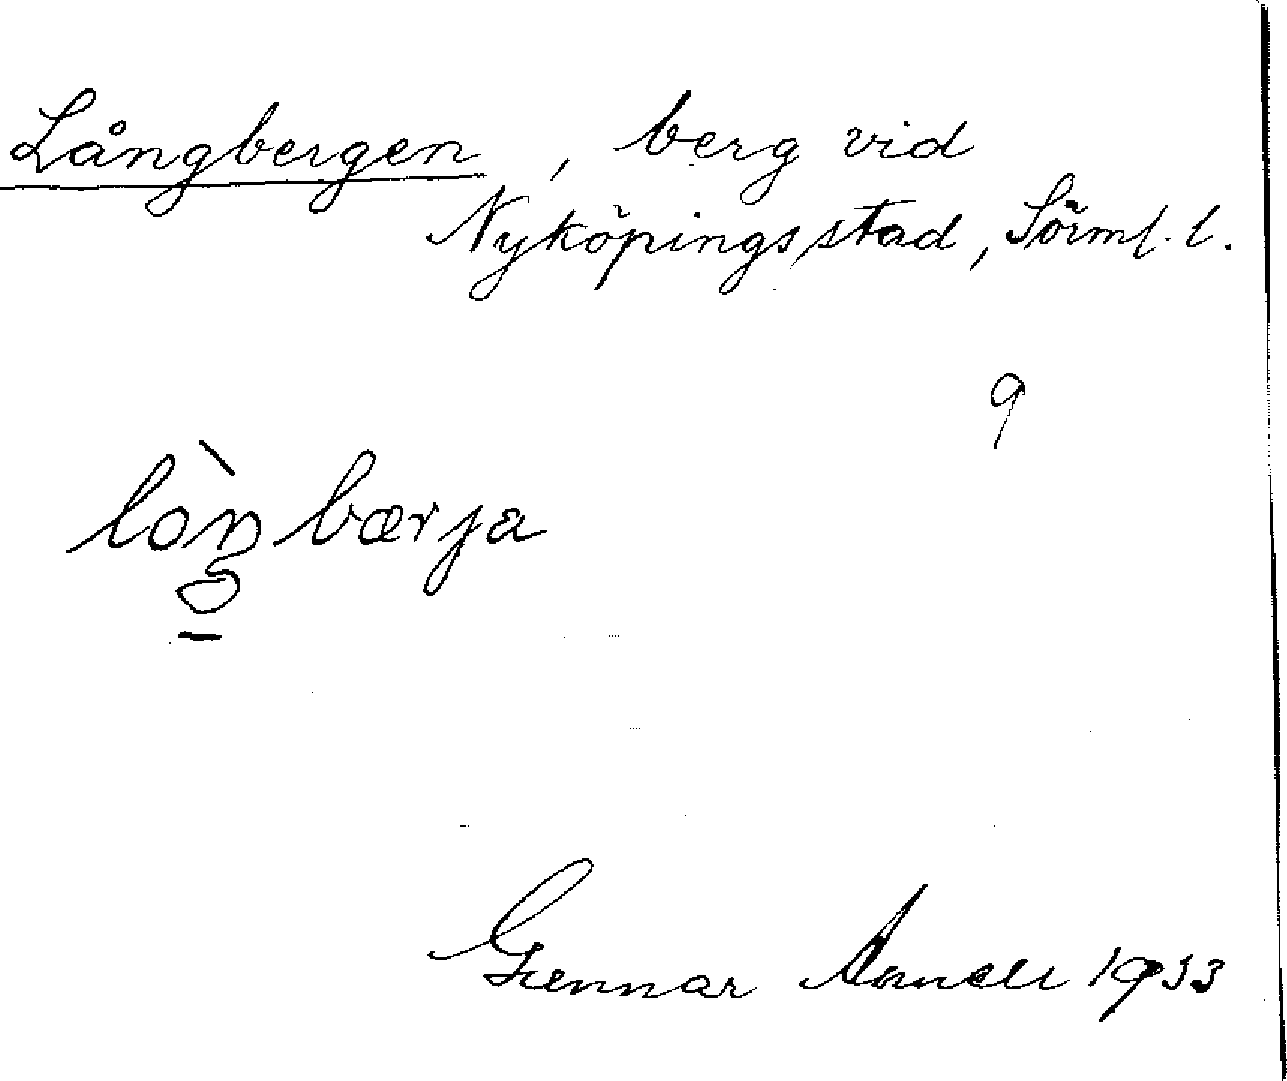 Långbergen, berg vid
Nyköpings stad, Sörml. l.
9
lòŋbærja
Gunnar 1933